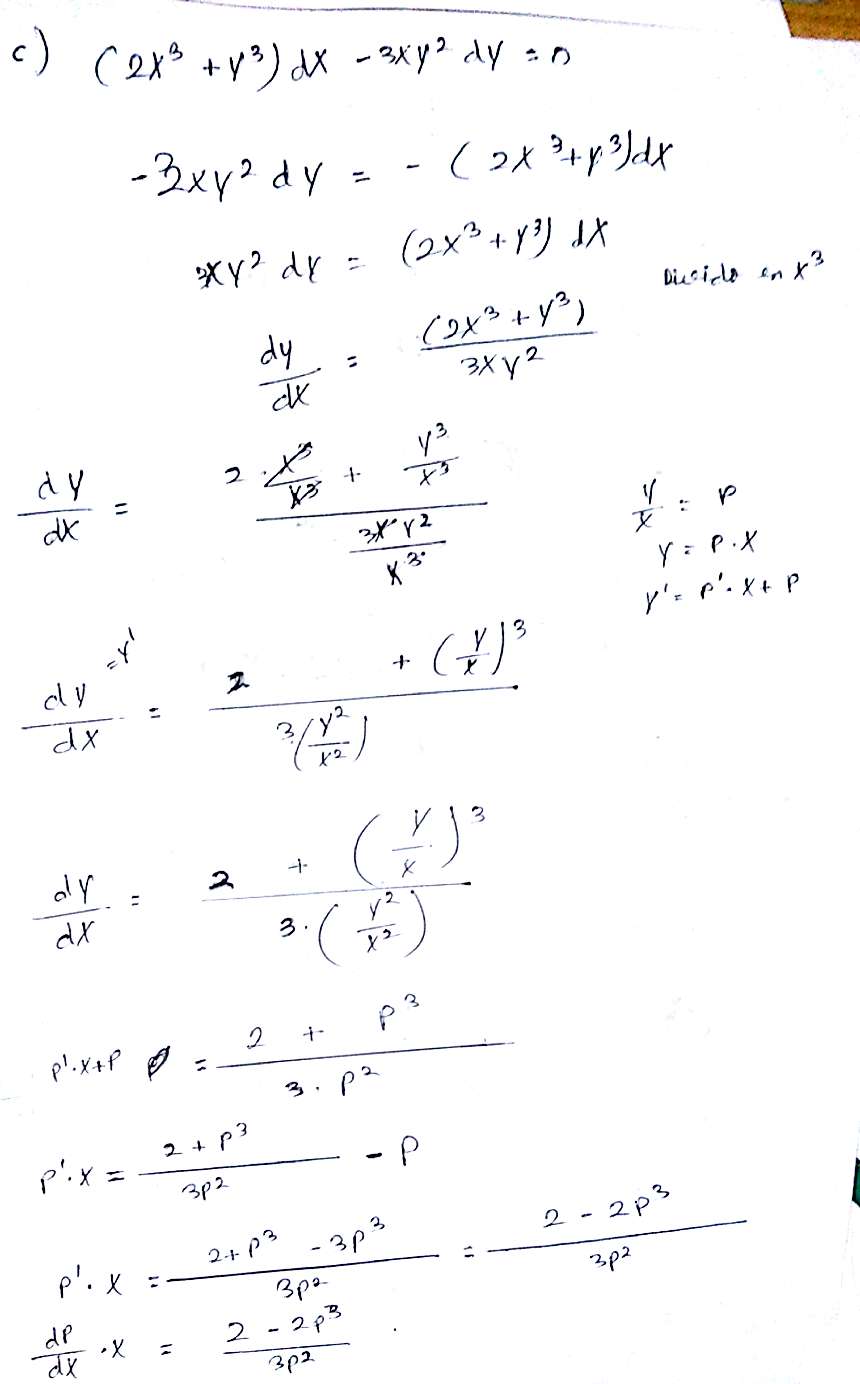 c) (2x³ + y³) dx - 3xy² dy = 0
-3xy² dy = - (2x³ + y³) dx
3xy² dy = (2x³ + y³) dx
Divido en x³
dy/dx = (2x³ + y³) / 3xy²
dy/dx = (2 · x³/x³ + y³/x³) / (3x y²/x³)
y/x = p
y = p·x
y' = p'·x + p
dy/dx = y' = (2 + (y/x)³) / 3(y²/x²)
dy/dx = (2 + (y/x)³) / 3·(y²/x²)
p'·x+p = (2 + p³) / 3·p²
p'·x = (2 + p³) / 3p² - p
p'·x = (2+p³ - 3p³) / 3p² = (2 - 2p³) / 3p²
dp/dx ·x = (2 - 2p³) / 3p² .